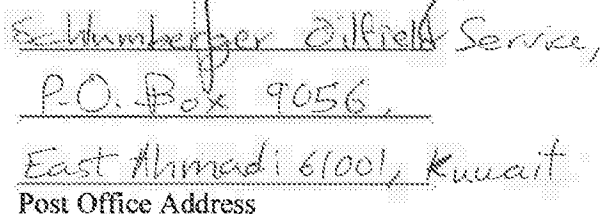 Schlumberger Oilfield Service,
P.O. Box 9056,
East Ahmadi 61001, Kuwait
Post Office Address